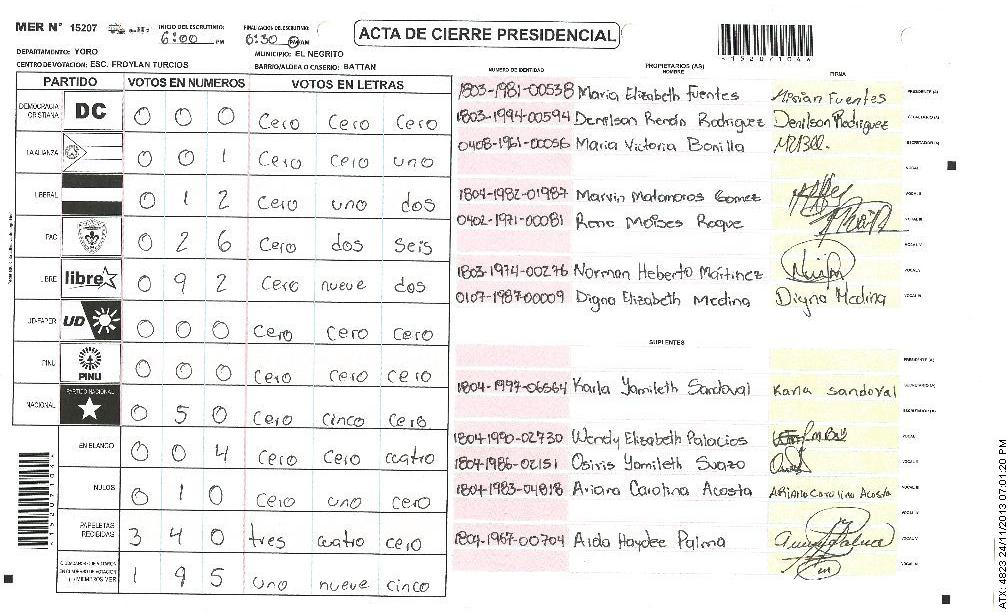 MER N° 15207
INICIO DEL ESCRUTINIO: 6:00 PM
FINALIZACION DEL ESCRUTINIO: 6:30 PM AM
ACTA DE CIERRE PRESIDENCIAL
DEPARTAMENTO: YORO
MUNICIPIO: EL NEGRITO
CENTRO DE VOTACION: ESC. FROYLAN TURCIOS
BARRIO/ALDEA O CASERIO: BATTAN
PARTIDO VOTOS EN NUMEROS VOTOS EN LETRAS
DEMOCRACIA CRISTIANA DC 0 0 0 Cero Cero Cero
LA ALIANZA 0 0 1 Cero cero uno
LIBERAL 0 1 2 Cero uno dos
PAC 0 2 6 Cero dos Seis
LIBRE libre 0 9 2 Cero nueve dos
UD-FAPER UD 0 0 0 Cero Cero Cero
PINU PINU 0 0 0 Cero Cero Cero
NACIONAL PARTIDO NACIONAL 0 5 0 Cero Cinco Cero
EN BLANCO 0 0 4 Cero Cero cuatro
NULOS 0 1 0 Cero uno cero
PAPELETAS RECIBIDAS 3 4 0 tres cuatro cero
1 9 5 uno nueve cinco
NUMERO DE IDENTIDAD PROPIETARIOS (AS) NOMBRE FIRMA
1803-1981-00538 Maria Elizabeth Fuentes Mirian Fuentes PRESIDENTE (A)
1803-1994-00594 Denilson Renán Rodriguez Denilson Rodriguez SECRETARIO (A)
0408-1961-00056 Maria Victoria Bonilla ESCRUTADOR (A)
VOCAL I
1804-1982-01987 Marvin Matamoros Gomez VOCAL II
0402-1971-00081 Rene Moises Roque VOCAL III
VOCAL IV
1803-1974-00276 Norman Heberto Martinez VOCAL V
0107-1987-00009 Digna Elizabeth Medina Digna Medina VOCAL VI
SUPLENTES
PRESIDENTE (A)
1804-1997-06564 Karla Yamileth Sandoval Karla Sandoval SECRETARIO (A)
ESCRUTADOR (A)
1804-1990-02730 Wendy Elizabeth Palacios VOCAL I
1804-1986-02151 Osiris Yamileth Suazo VOCAL II
1804-1983-04818 Ariana Carolina Acosta Ariana Carolina Acosta VOCAL III
VOCAL IV
1804-1967-00704 Aida Haydee Palma VOCAL V
VOCAL VI
ATX: 4823 24/11/2013 07:01:20 PM